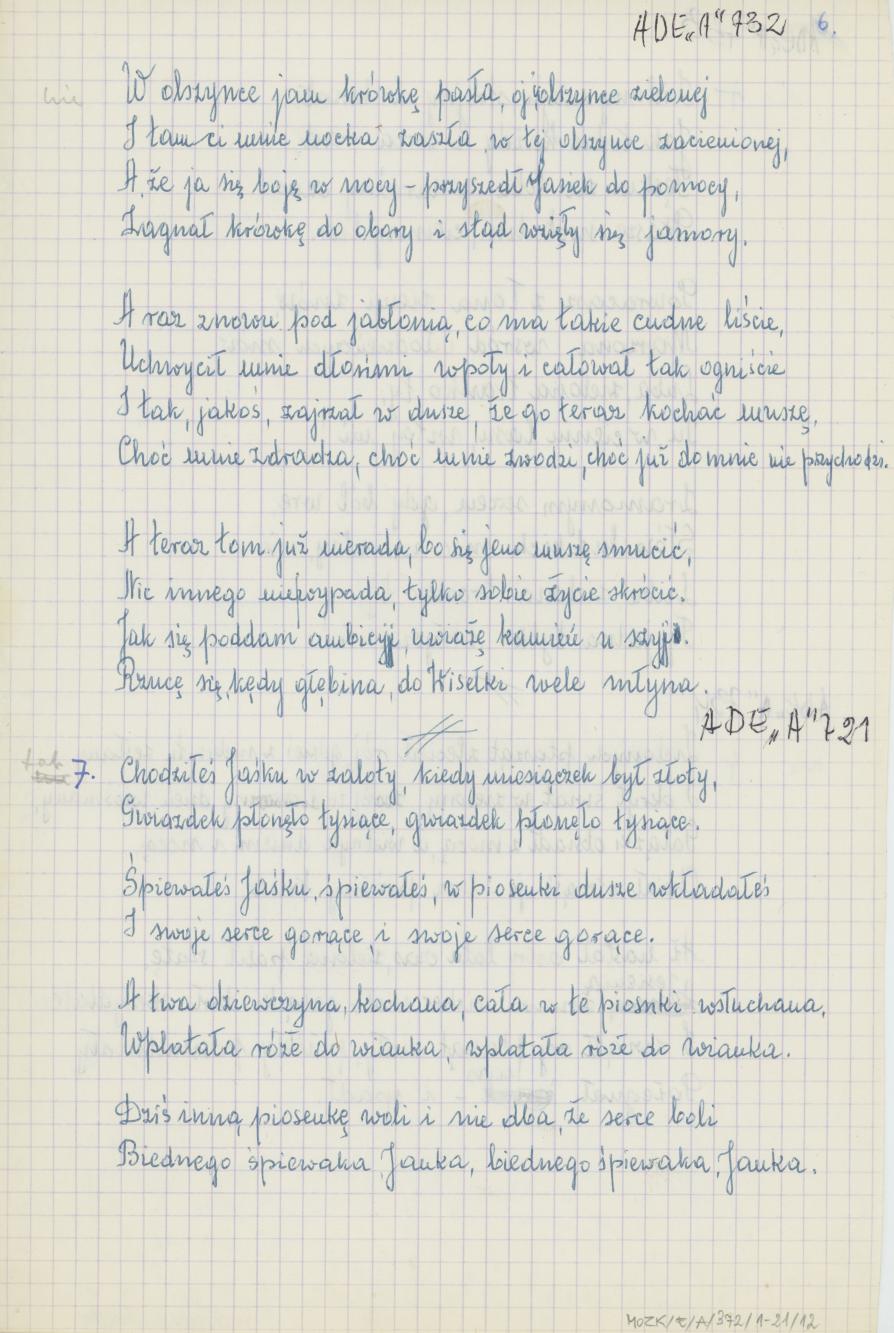 ADE„A" 732 6.
nie
W olszynce jam krówkę pasła, oj w olszynce zielonej
I tam ci mnie nocka zaszła, w tej olszynce zacienionej,
A, że ja się boję w nocy – przyszedł Janek do pomocy,
Zagnał krówkę do obory i stąd wzięły się jamory.
A raz znowu pod jabłonią, co ma takie cudne liście,
Uchwycił mnie dłońmi wpoły i całował tak ogniście
I tak, jakoś, zajrzał w dusze, że go teraz kochać muszę,
Choć mnie zdradza, choc mnie zwodzi, choć już do mnie nie przychodzi.
A teraz tom już nierada, bo się jeno muszę smucić,
Nic innego niewypada, tylko sobie życie skrócić.
Jak się poddam ambicyji, uwiążę kamień u szyji.
Rzucę się, kędy głębina, do Wisełki wele młyna.
ADE„A" 721
tak
7. Chodziłeś Jaśku w zaloty, kiedy miesiączek był złoty,
Gwiazdek płonęło tysiące, gwiazdek płonęło tysiące.
Śpiewałeś Jaśku, śpiewałeś, w piosenki dusze wkładałeś
I swoje serce gorące, i swoje serce gorące.
A twa dziewczyna, kochana, cała w te piosnki wsłuchana,
Wplatała róże do wianka, wplatała róże do wianka.
Dziś inną piosenkę woli i nie dba, że serce boli
Biednego śpiewaka Janka, biednego śpiewaka, Janka.
MOZK/R/A/372/1-21/12